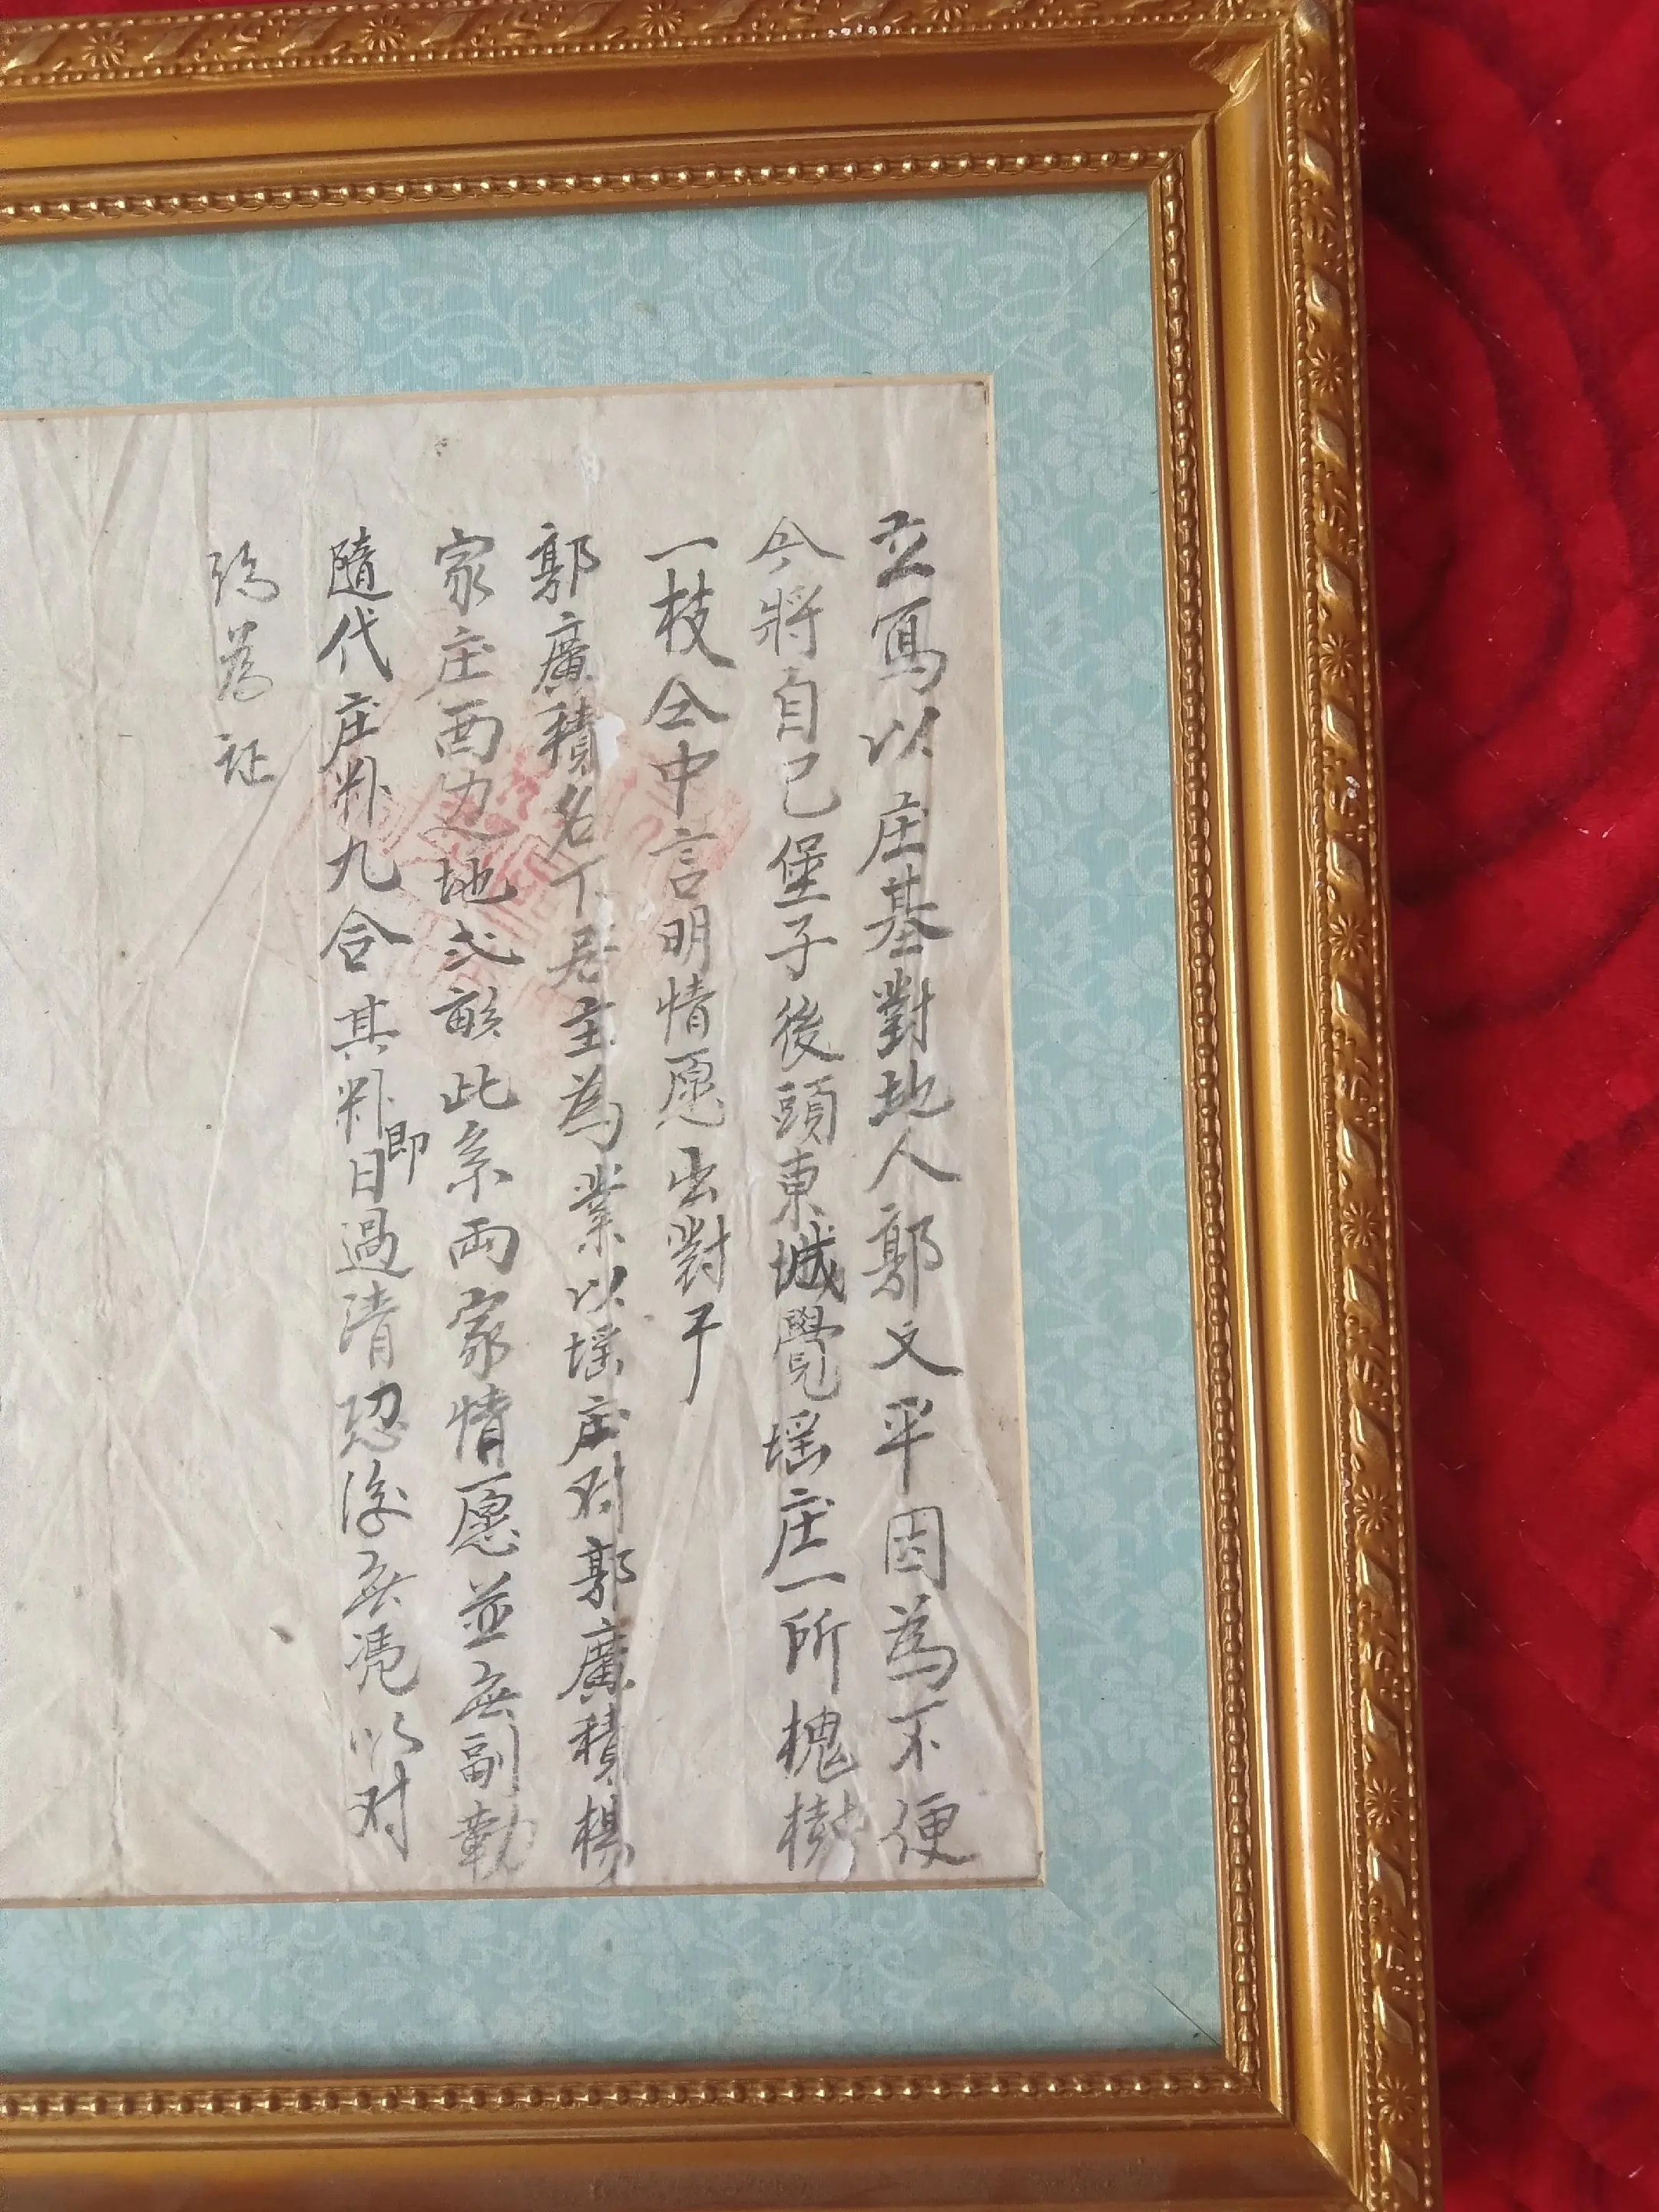 立寫以庄基對地人郭文平因為不便
今將自己堡子後頭東城覺塩庄一所槐樹
一枝仝中言明情愿出對于
郭廣積名下居主為業以塩庄对郭廣積楊
家庄西边地弍畝此系兩家情愿並無副勒
隨代庄粮九合其粮即日過清恐後無凭以对
約為证